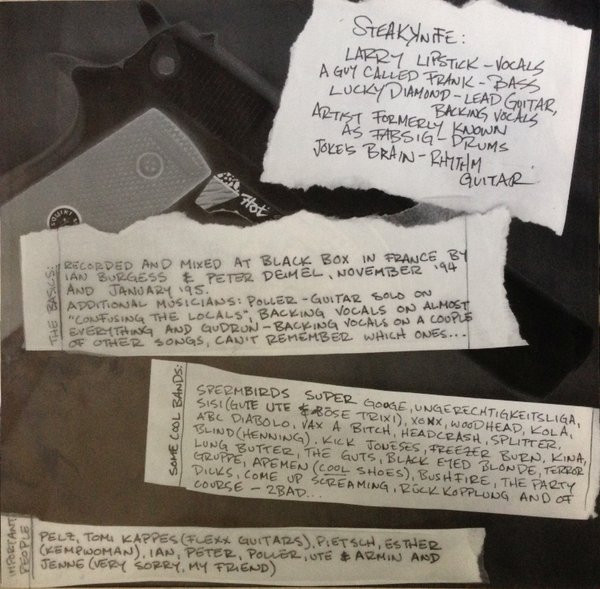 STEAKKNIFE:
LARRY LIPSTICK - VOCALS
A GUY CALLED FRANK - BASS
LUCKY DIAMOND - LEAD GUITAR,
BACKING VOCALS
ARTIST FORMERLY KNOWN
AS FABSIG - DRUMS
JOKE'S BRAIN - RHYTHM
GUITAR
Hot
THE BASICS:
RECORDED AND MIXED AT BLACK BOX IN FRANCE BY
IAN BURGESS & PETER DEIMEL, NOVEMBER '94
AND JANUARY '95.
ADDITIONAL MUSICIANS: POLLER - GUITAR SOLO ON
"CONFUSING THE LOCALS", BACKING VOCALS ON ALMOST
EVERYTHING AND GUDRUN - BACKING VOCALS ON A COUPLE
OF OTHER SONGS, CAN'T REMEMBER WHICH ONES...
SOME COOL BANDS:
SPERMBIRDS SUPER GOUGE, UNGERECHTIGKEITSLIGA,
SISI (GUTE UTE & BÖSE TRIXI), XONX, WOODHEAD, KOLA,
ABC DIABOLO, VAX A BITCH, HEADCRASH, SPLITTER,
BLIND (HENNING), KICK JONESES, FREEZER BURN, KINA,
LUNG BUTTER, THE GUTS, BLACK EYED BLONDE, TERROR
GRUPPE, APEMEN (COOL SHOES), BUSHFIRE, THE PARTY
DICKS, COME UP SCREAMING, RÜCKKOPPLUNG AND OF
COURSE - 2BAD...
IMPORTANT
PEOPLE:
PELZ, TOMI KAPPES (FLEXX GUITARS), PIETSCH, ESTHER
(KEMPWOMAN), IAN, PETER, POLLER, UTE & ARMIN AND
JENNE (VERY SORRY, MY FRIEND)